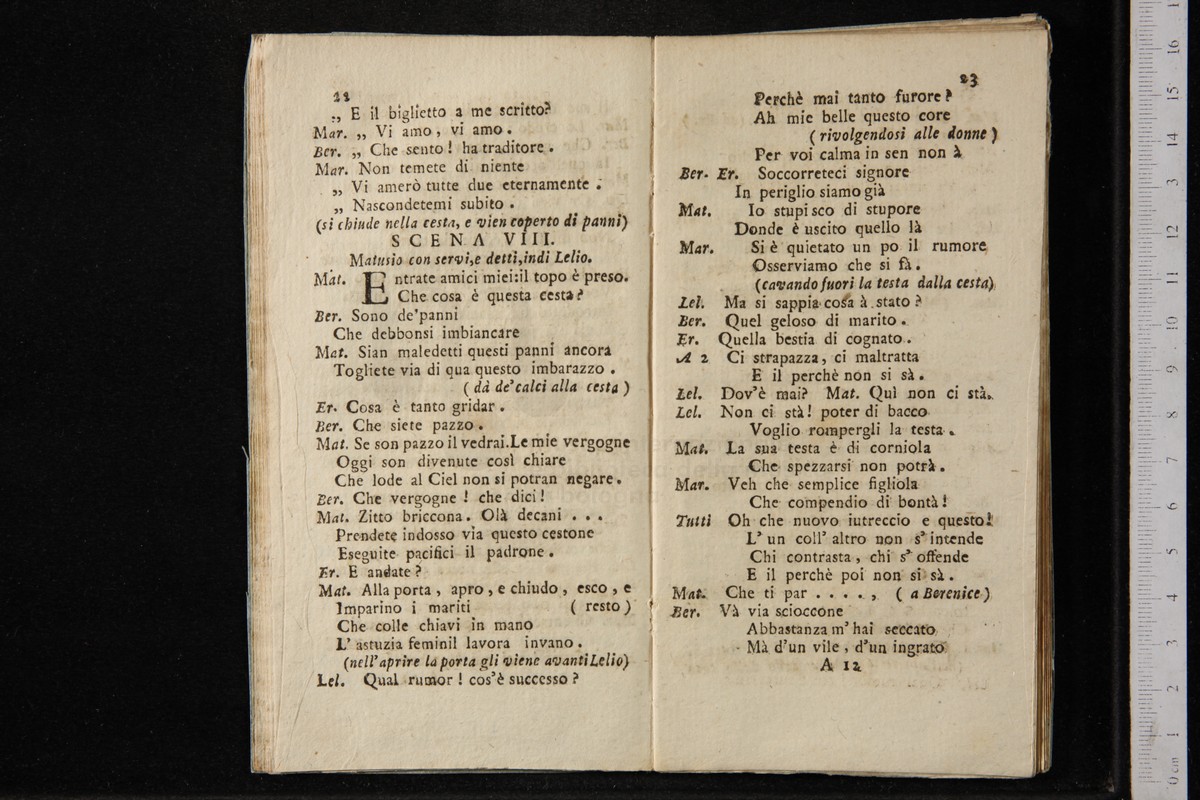 22
„ E il biglietto a me scritto?
Mar. „ Vi amo, vi amo.
Ber. „ Che sento! ha traditore.
Mar. Non temete di niente
„ Vi amerò tutte due eternamente.
„ Nascondetemi subito.
(si chiude nella cesta, e vien coperto di panni)
SCENA VIII.
Matusio con servi,e detti,indi Lelio.
Mat. Entrate amici miei:il topo è preso.
Che cosa è questa cesta?
Ber. Sono de'panni
Che debbonsi imbiancare
Mat. Sian maledetti questi panni ancora
Togliete via di qua questo imbarazzo.
(dà de'calci alla cesta)
Er. Cosa è tanto gridar.
Ber. Che siete pazzo.
Mat. Se son pazzo il vedrai.Le mie vergogne
Oggi son divenute così chiare
Che lode al Ciel non si potran negare.
Ber. Che vergogne! che dici!
Mat. Zitto briccona. Olà decani . . .
Prendete indosso via questo cestone
Eseguite pacifici il padrone.
Er. E andate?
Mat. Alla porta, apro, e chiudo, esco, e
Imparino i mariti (resto)
Che colle chiavi in mano
L'astuzia feminil lavora invano.
(nell'aprire la porta gli viene avanti Lelio)
Lel. Qual rumor! cos'è successo?
23
Perchè mai tanto furore?
Ah mie belle questo core
(rivolgendosi alle donne)
Per voi calma in sen non à
Ber. Er. Soccorreteci signore
In periglio siamo già
Mat. Io stupisco di stupore
Donde è uscito quello là
Mar. Si è quietato un po il rumore
Osserviamo che si fà.
(cavando fuori la testa dalla cesta)
Lel. Ma si sappia cosa à stato?
Ber. Quel geloso di marito.
Er. Quella bestia di cognato.
A 2 Ci strapazza, ci maltratta
E il perchè non si sà.
Lel. Dov'è mai? Mat. Quì non ci stà.
Lel. Non ci stà! poter di bacco
Voglio rompergli la testa.
Mat. La sua testa è di corniola
Che spezzarsi non potrà.
Mar. Veh che semplice figliola
Che compendio di bontà!
Tutti Oh che nuovo iutreccio e questo!
L' un coll' altro non s'intende
Chi contrasta, chi s' offende
E il perchè poi non si sà.
Mat. Che ti par . . . . , (a Berenice)
Ber. Và via scioccone
Abbastanza m'hai seccato
Mà d'un vile, d'un ingrato
A 12